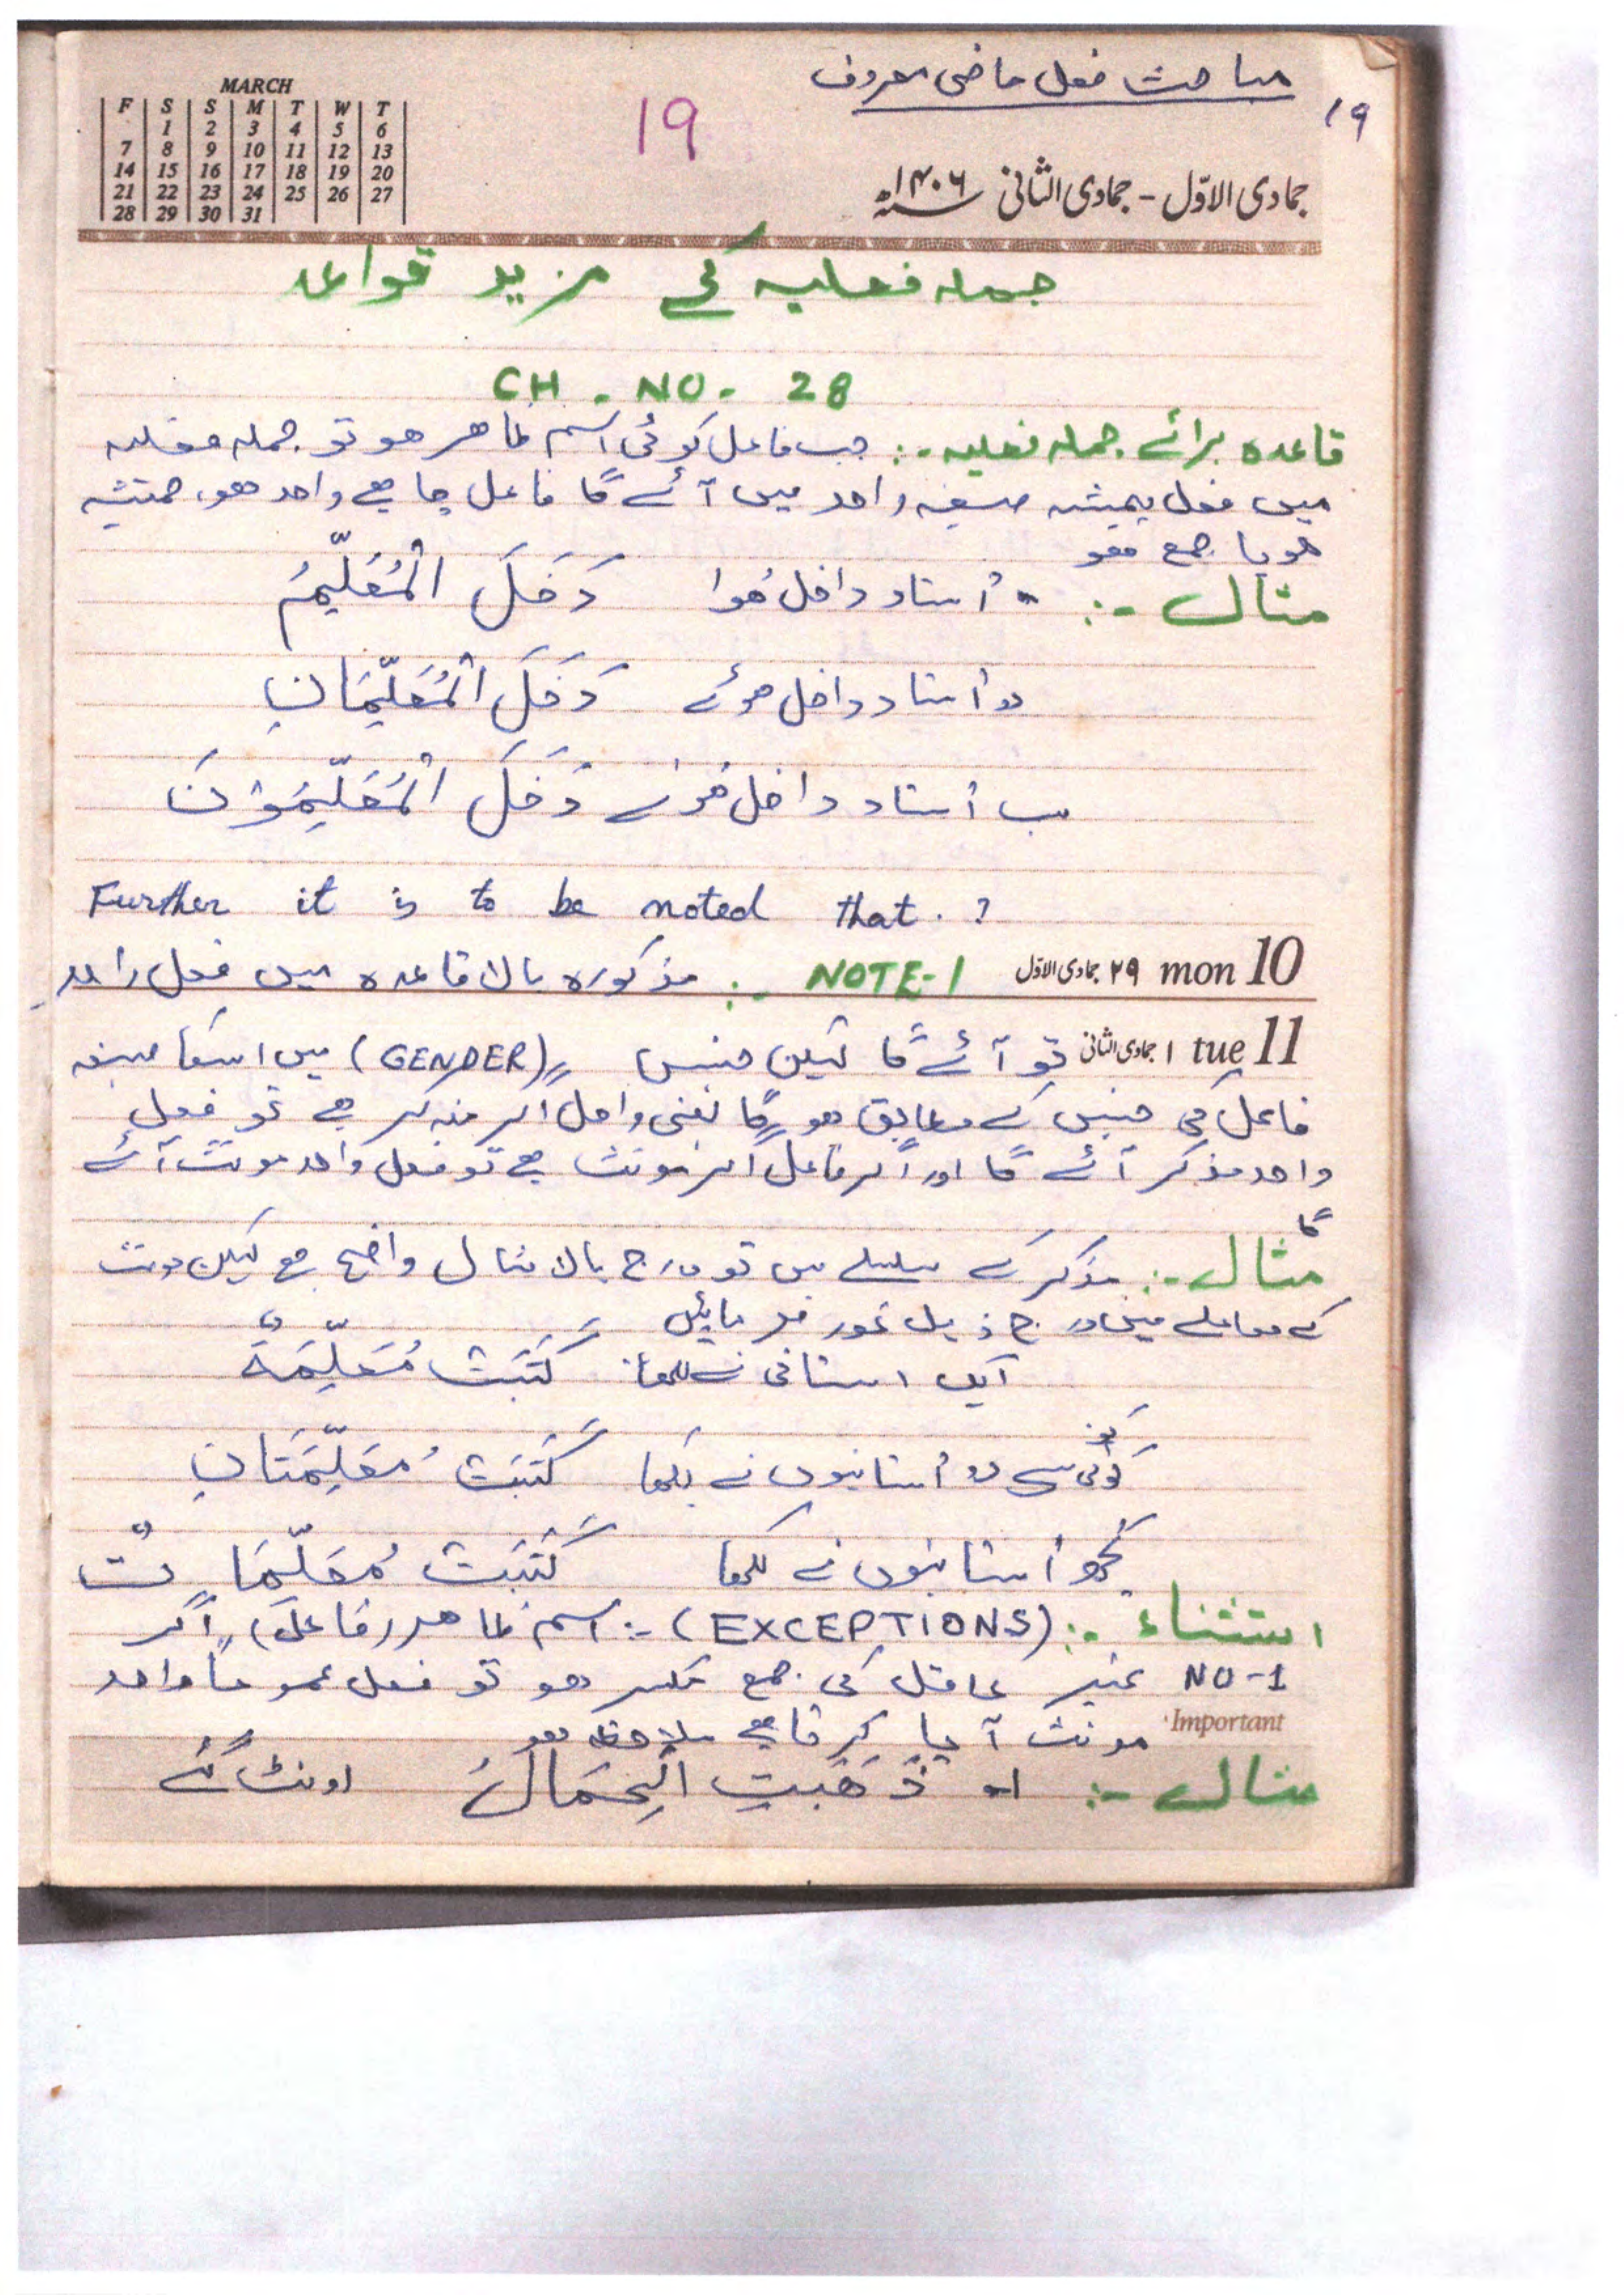 مباحث فعل ماضی معروف
19
19
MARCH
F S S M T W T
1 2 3 4 5 6
7 8 9 10 11 12 13
14 15 16 17 18 19 20
21 22 23 24 25 26 27
28 29 30 31
جمادی الاوّل - جمادی الثانی ۱۴۰۶ھ
جملہ فعلیہ کے مزید قواعد
CH - NO - 28
قاعدہ برائے جملہ فعلیہ :- جب فاعل کوئی اسم ظاہر ہو تو جملہ فعلیہ
میں فعل ہمیشہ صیغہ واحد میں آئے گا فاعل چاہے واحد ہو،
ہو یا جمع ہو
مثال :- استاد داخل ہُوا دَخَلَ الْمُعَلِّمُ
دو اُستاد داخل ہوئے دَخَلَ الْمُعَلِّمَانِ
سب اُستاد داخل ہوئے دَخَلَ الْمُعَلِّمُوْنَ
Further it is to be noted that . ?
mon 10 ۲۹ جمادی الاوّل NOTE-1 :- مذکورہ بالا قاعدہ میں فعل واحد
tue 11 ۱ جمادی الثانی تو آئے گا لیکن جنس (GENDER) میں اسکا صیغہ
فاعل کی جنس کے مطابق ہو گا یعنی اگر مذکر ہے تو فعل
واحد مذکر آئے گا اور اگر فاعل اگر مونث ہے تو فعل واحد مونث آئے
گا
مثال :- مذکر کے سلسلے میں تو درج بالا مثال واضح ہے لیکن مونث
کے معاملے میں درج ذیل غور فرمائیں
ایک استانی نے لکھا كَتَبَتْ مُعَلِّمَةٌ
کوئی سی دو اُستانیوں نے لکھا كَتَبَتْ مُعَلِّمَتَانِ
کچھ اُستانیوں نے لکھا كَتَبَتْ مُعَلِّمَاتٌ
استثناء :- (EXCEPTIONS) :- اسم ظاہر (فاعل) اگر
NO-1 غیر عاقل کی جمع مکسر ہو تو فعل عموماً واحد
Important مونث آ جایا کرتا ہے ملاحظہ ہو
مثال :- ۱۔ ذَهَبَتِ الْجِمَالُ اونٹ گئے